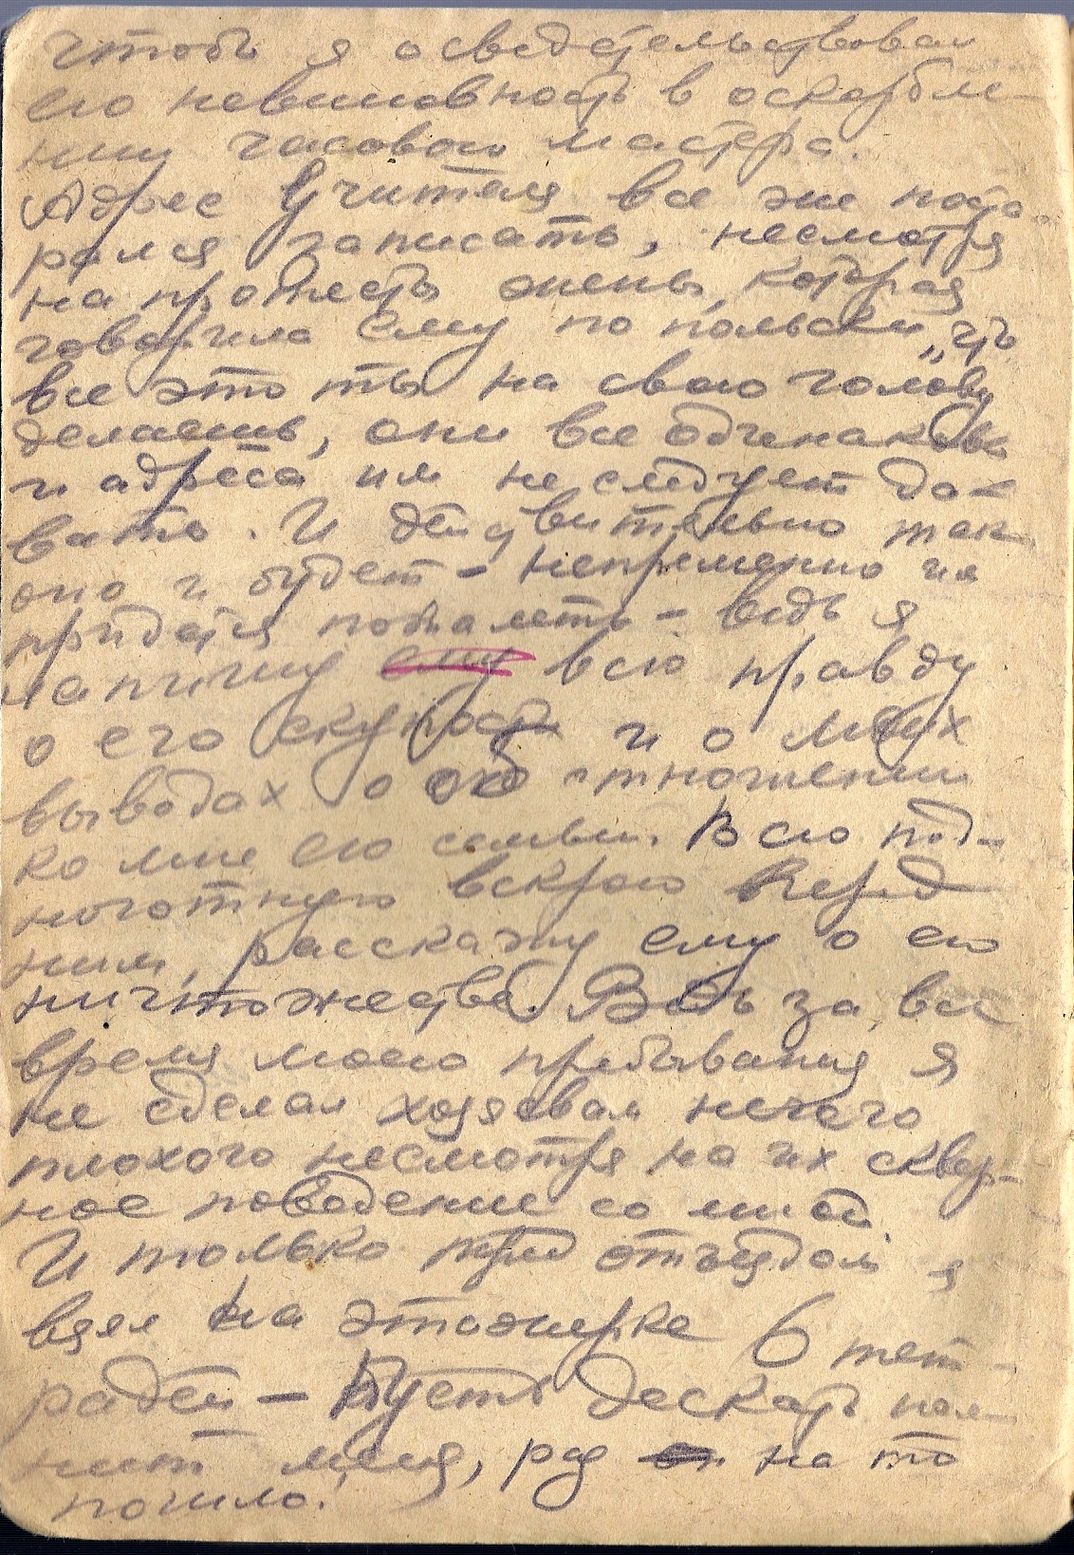 чтобы я освидетельствовал
его невиновность в оскорбле-
нии часового мастера.
Адрес учителя все же поста-
рался записать, несмотря
на протесты жены, которая
говорила ему по польски, „что
все это ты на свою голову
делаешь, они все одинаковы
и адреса им не следует да-
вать. И действительно так
оно и будет - непременно им
придется пожалеть - ведь я
напишу ему всю правду
о его скупости и о моих
выводах о отношении
ко мне его семьи. Всю под-
ноготную вскрою перед
ним, расскажу ему о его
ничтожестве. Ведь за все
время моего пребывания я
не сделал хозяевам нечего
плохого несмотря на их сквер-
ное поведение со мной
И только пред отъездом я
взял на этажерке 6 тет-
радей - Пусть дескать пом-
нит меня, раз на то
пошло.